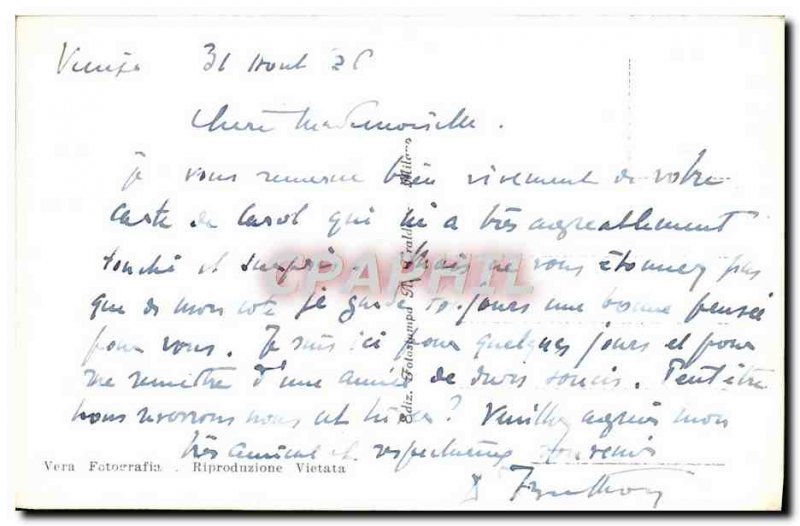 31 Aout
chere Mademoiselle.
je vous remercie bien vivement de votre
carte de Carol qui m'a très agreablement
touché et surpris. Mais ne vous étonnez pas
que de mon coté je garde toujours une bonne pensée
pour vous. Je suis ici pour quelques jours et pour
me remettre d'une année de durs soucis. Peut être
nous reverrons nous cet hiver? Veuillez agréer mon
très amical et respectueux souvenir
Vera Fotografia . Riproduzione Vietata
Ediz. Fotostampa Milano
CPAPHIL